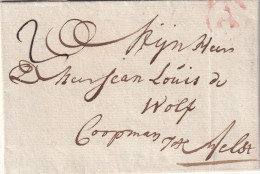 Mijn Heer
Jean Louis de
Wolf
Coopman tot Aelst
A